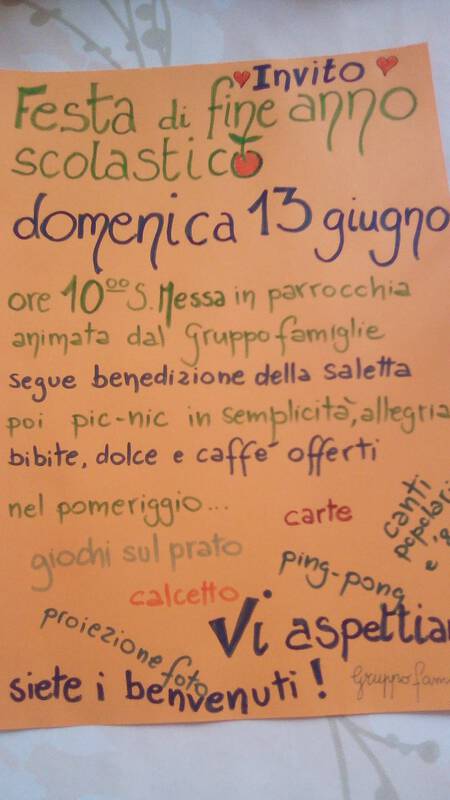 Invito
Festa di fine anno
scolastico
domenica 13 giugno
ore 10⁰⁰ S. Messa in parrocchia
animata dal gruppo famiglie
segue benedizione della saletta
poi pic-nic in semplicità, allegria
bibite, dolce e caffè offerti
nel pomeriggio...
carte
canti
popolari
e
giochi sul prato
ping-pong
calcetto
proiezione foto
Vi aspettia
siete i benvenuti!
Gruppo fam